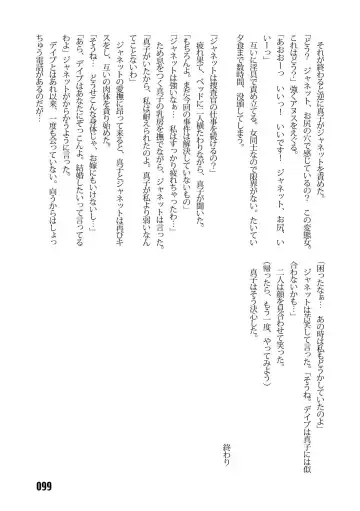 それが終わると逆に真子がジャネットを責めた。
「どう？　ジャネット、お尻の穴で感じているの？　この変態女。
これはどう？」強くアヌスをえぐる。
「あおおー！　いいっ！　いいできー！　ジャネット、お尻、い
いーっ」
互いに淫具で責め立てる。女同士なので限界がない。たいてい
夕食まで数時間、没頭してしまう。
「ジャネットは捜査官の仕事を続けるの？」
疲れ果て、ベッドに二人横たわりながら、真子が聞いた。
「もちろんよ。まだ今回の事件は解決していないもの」
「ジャネットは強いなぁ…　私はすっかり疲れちゃったわ…」
ため息をつく真子の乳房を撫でながら、ジャネットは言った。
「真子がいたから、私は耐えられたのよ。真子が私より弱いなん
てことないわ」
ジャネットの愛撫に昂って来ると、真子とジャネットは再びキ
スをし、互いの肉体を貪り始めた。
「そうね…　どうせこんな身体じゃ、お嫁にもいけないし…」
「あら、デイブはあなたにぞっこんよ。結婚したいって言ってる
わよ」ジャネットがからかうように言った。
デイブとはあれ以来、一度も会っていない。向うからはしょっ
ちゅう電話があるのだが…
「困ったなぁ…　あの時は私もどうかしていたのよ」
ジャネットは苦笑して言った。「そうね、デイブは真子には似
合わないかも…」
二人は顔を見合わせて笑った。
（帰ったら、もう一度、やってみよう）
真子はそう決心した。
終わり
099